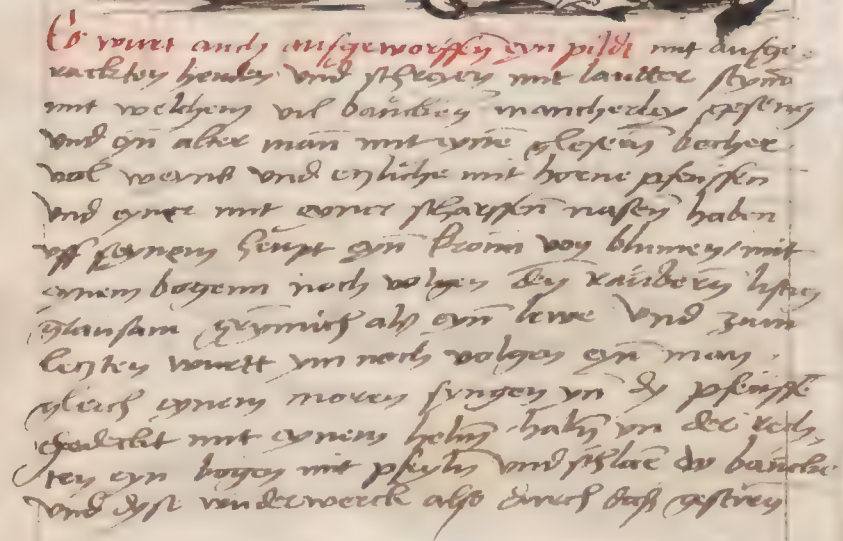 Es wurt auch aufgeworffen eyn pildt mit aufge
rackten henden und schreyen mit lautter stym
mit welchem vil baucken mancherley geseng
und eyn alter man mit eyne gleseren becher
vol weynß und etzliche mit horne pfeuffen
und eyner mit eyner scharffen nasen haben
uff seynem heupt eyn kronn von blumen mit
eynem bogenn noch volgen den raubern listig
grausam grymich als eyn lewe und zum
letzten wurtt ym noch volgen eyn man
gleich eynem moren syngen yn dy pfeuffe
gedeckt mit eynem helm haben yn der rech
ten eyn bogen mit pfeyln und schlaen dy baucke
und dyse wunderwerck also durch daß gestirn